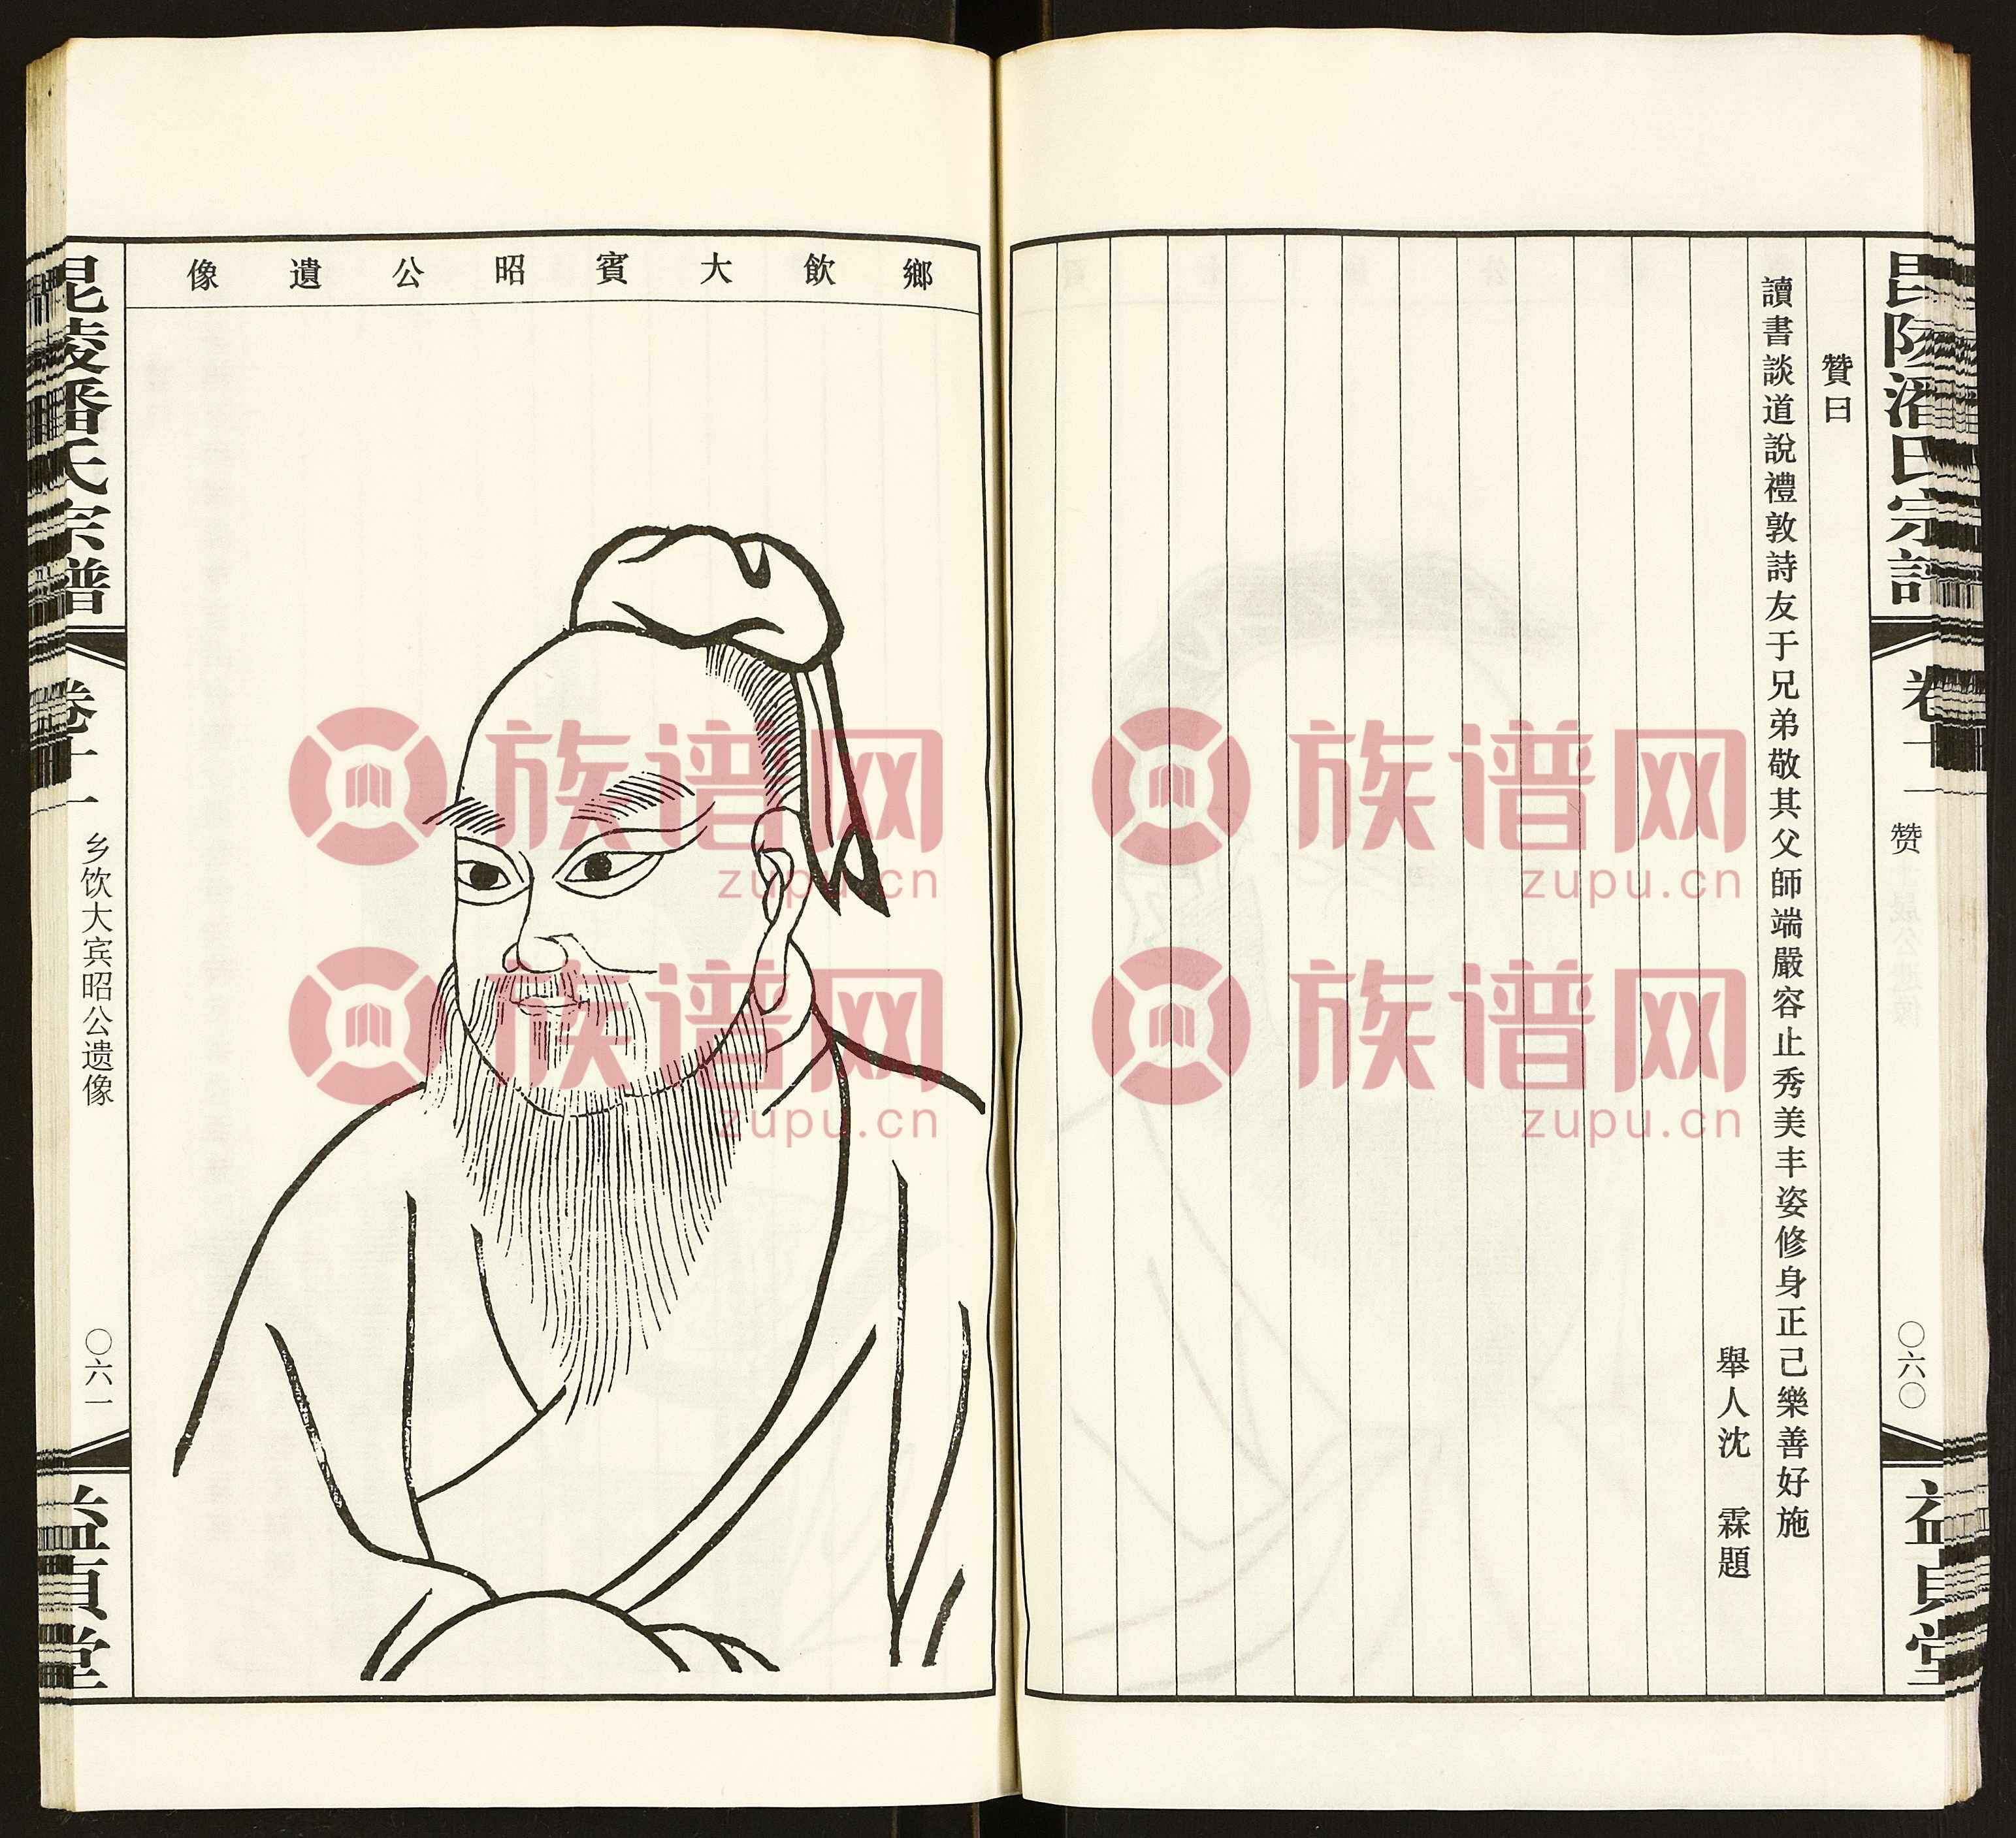 毘陵潘氏宗譜
卷十一
赞
〇六〇
益貞堂
贊曰
讀書談道說禮敦詩友于兄弟敬其父師端嚴容止秀美丰姿修身正己樂善好施
舉人沈 霖題
鄉飲大賓昭公遺像
毘陵潘氏宗譜
卷十一
乡饮大宾昭公遗像
〇六一
益貞堂
族谱网
zupu.cn
族谱网
zupu.cn
族谱网
zupu.cn
族谱网
zupu.cn